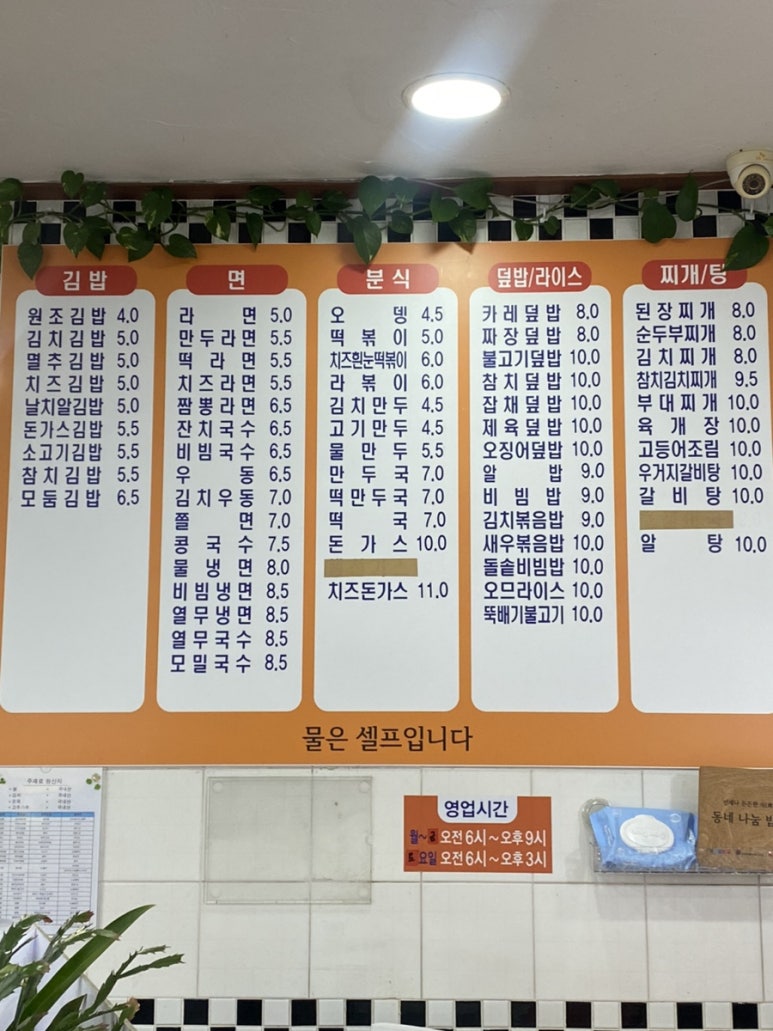 김밥
원조김밥 4.0
김치김밥 5.0
멸추김밥 5.0
치즈김밥 5.0
날치알김밥 5.0
돈가스김밥 5.5
소고기김밥 5.5
참치김밥 5.5
모둠김밥 6.5
면
라면 5.0
만두라면 5.5
떡라면 5.5
치즈라면 5.5
짬뽕라면 6.5
잔치국수 6.5
비빔국수 6.5
우동 6.5
김치우동 7.0
쫄면 7.0
콩국수 7.5
물냉면 8.0
비빔냉면 8.5
열무냉면 8.5
열무국수 8.5
모밀국수 8.5
분식
오뎅 4.5
떡볶이 5.0
치즈흰눈떡볶이 6.0
라볶이 6.0
김치만두 4.5
고기만두 4.5
물만두 5.5
만두국 7.0
떡만두국 7.0
떡국 7.0
돈가스 10.0
치즈돈가스 11.0
덮밥/라이스
카레덮밥 8.0
짜장덮밥 8.0
불고기덮밥 10.0
참치덮밥 10.0
잡채덮밥 10.0
제육덮밥 10.0
오징어덮밥 10.0
알밥 9.0
비빔밥 9.0
김치볶음밥 9.0
새우볶음밥 10.0
돌솥비빔밥 10.0
오므라이스 10.0
뚝배기불고기 10.0
찌개/탕
된장찌개 8.0
순두부찌개 8.0
김치찌개 8.0
참치김치찌개 9.5
부대찌개 10.0
육개장 10.0
고등어조림 10.0
우거지갈비탕 10.0
갈비탕 10.0
알탕 10.0
물은 셀프입니다
영업시간
월~금 오전6시~오후9시
토요일 오전6시~오후3시
동네 나눔